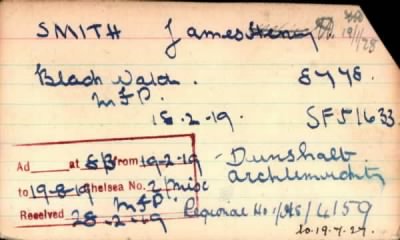 SMITH James Henry 19/1/28
Black Watch. 8778.
M.F.P.
18-2-19. SF51633
Ad at 8/3 from 19-2-19 Dunshalt.
to 19-8-19 Chelsea No. 2/Misc Auchtermuchty
M.F.P.
Received 28-2-19 Regional No. 4159
to 19.4.27.